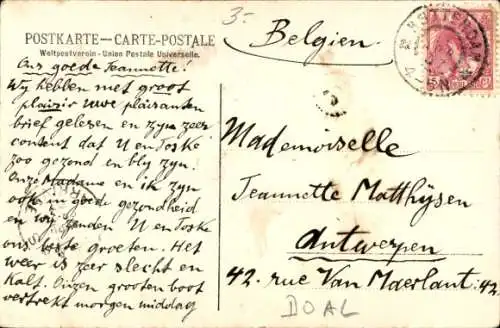 3.-
POSTKARTE - CARTE-POSTALE
Weltpostverein - Union Postale Universelle.
Ons goede Jeannette!
Wy hebben met groot
plaizir uwe plaisanten
brief gelezen en zyn zeer
content dat U en Toske
zoo gezond en bly zyn.
Onze Madame en ik zyn
ook in goede gezondheid
en wy zenden U en Toske
ons beste groeten. Het
weer is zeer slecht en
Kalt. Onzen grooten boot
vertrekt morgen middag
Belgien.
Mademoiselle
Jeannette Matthÿsen
Antwerpen
42. rue Van Maerlant: 42.
DOAL